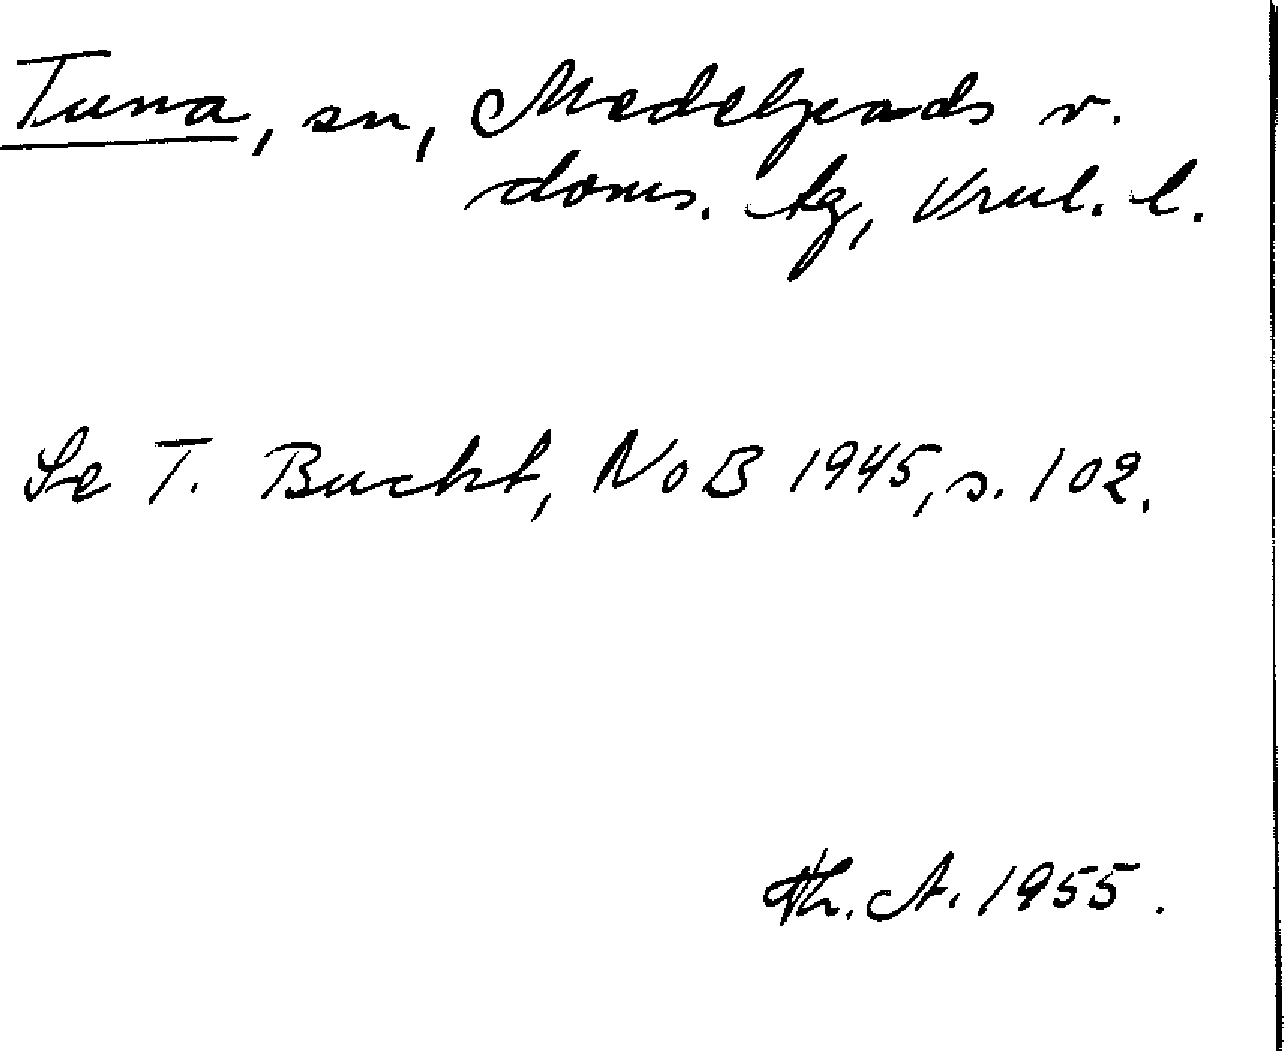 Tuna, sn, Medelpads v.
doms. tg, Vnul. l.
Se T. Bucht, NoB 1945, s. 102.
Th. A. 1955.